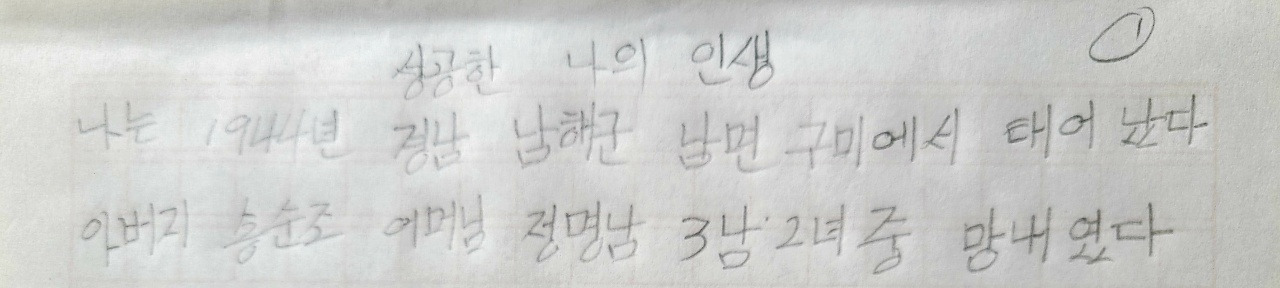 성공한 나의 인생 ①
나는 1944년 경남 남해군 남면 구미에서 태어 났다
아버지 송순조 어머님 정명남 3남 2녀 중 망내 였다